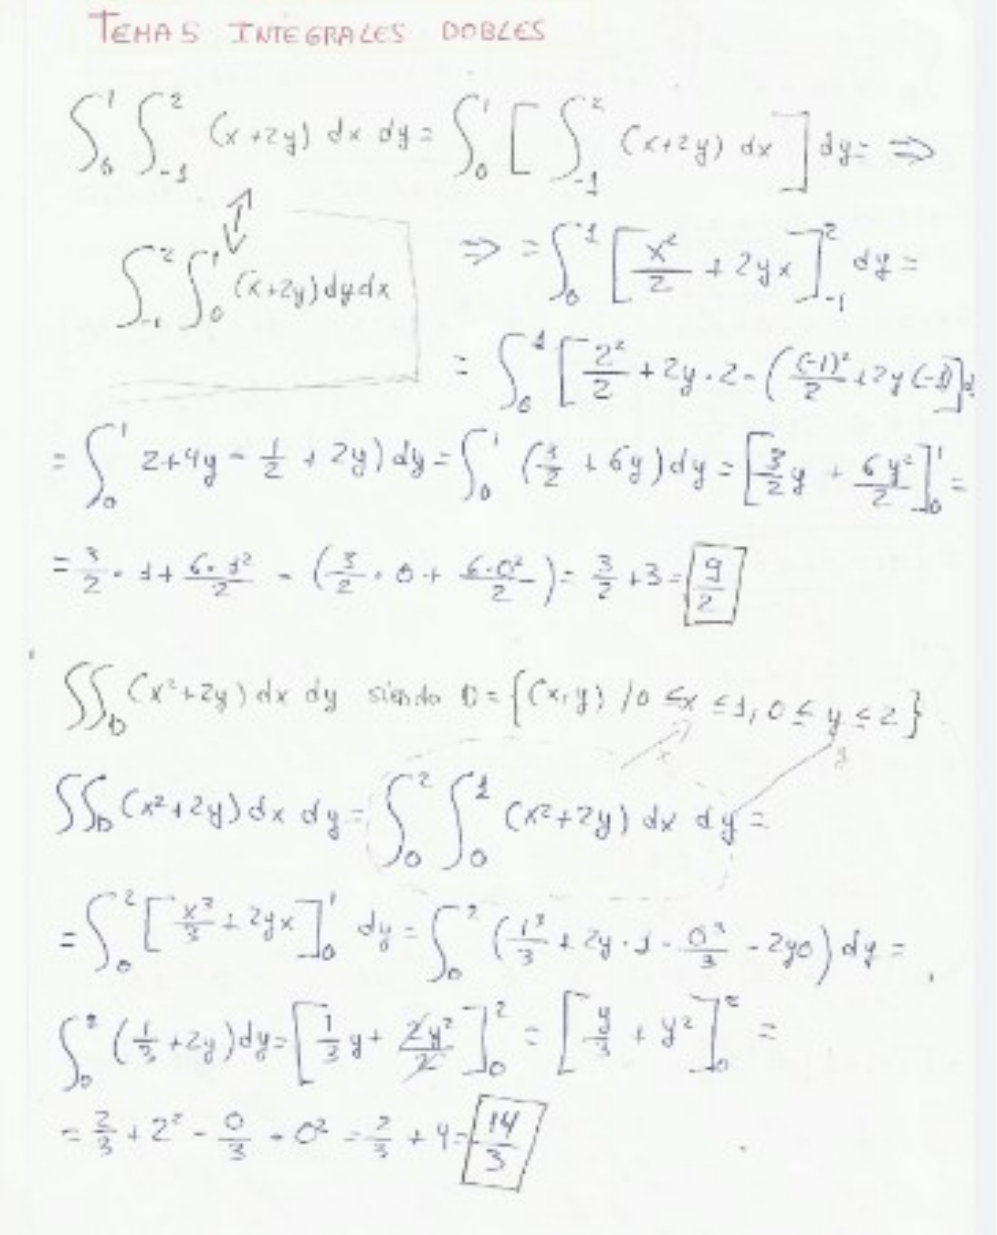 TEMA 5 INTEGRALES DOBLES
∫₀¹ ∫₋₁² (x+2y) dx dy = ∫₀¹ [ ∫₋₁² (x+2y) dx ] dy = ⇒
∫₋₁² ∫₀¹ (x+2y) dy dx
⇒ = ∫₀¹ [ x²/2 + 2yx ]₋₁² dy =
= ∫₀¹ [ 2²/2 + 2y·2 - ( (-1)²/2 + 2y(-1) ] d
= ∫₀¹ 2+4y - 1/2 + 2y) dy = ∫₀¹ (3/2 + 6y) dy = [ 3/2 y + 6y²/2 ]₀¹ =
= 3/2 · 1 + 6·1²/2 - ( 3/2 · 0 + 6·0²/2 ) = 3/2 + 3 = 9/2
∬_D (x²+2y) dx dy siendo D = {(x,y) / 0 ≤ x ≤ 1, 0 ≤ y ≤ 2}
x y
∬_D (x²+2y) dx dy = ∫₀² ∫₀¹ (x²+2y) dx dy =
= ∫₀² [ x³/3 + 2yx ]₀¹ dy = ∫₀² ( 1³/3 + 2y·1 - 0³/3 - 2y0 ) dy =
∫₀² ( 1/3 + 2y) dy = [ 1/3 y + 2y²/2 ]₀² = [ y/3 + y² ]₀² =
= 2/3 + 2² - 0/3 - 0² = 2/3 + 4 = 14/3